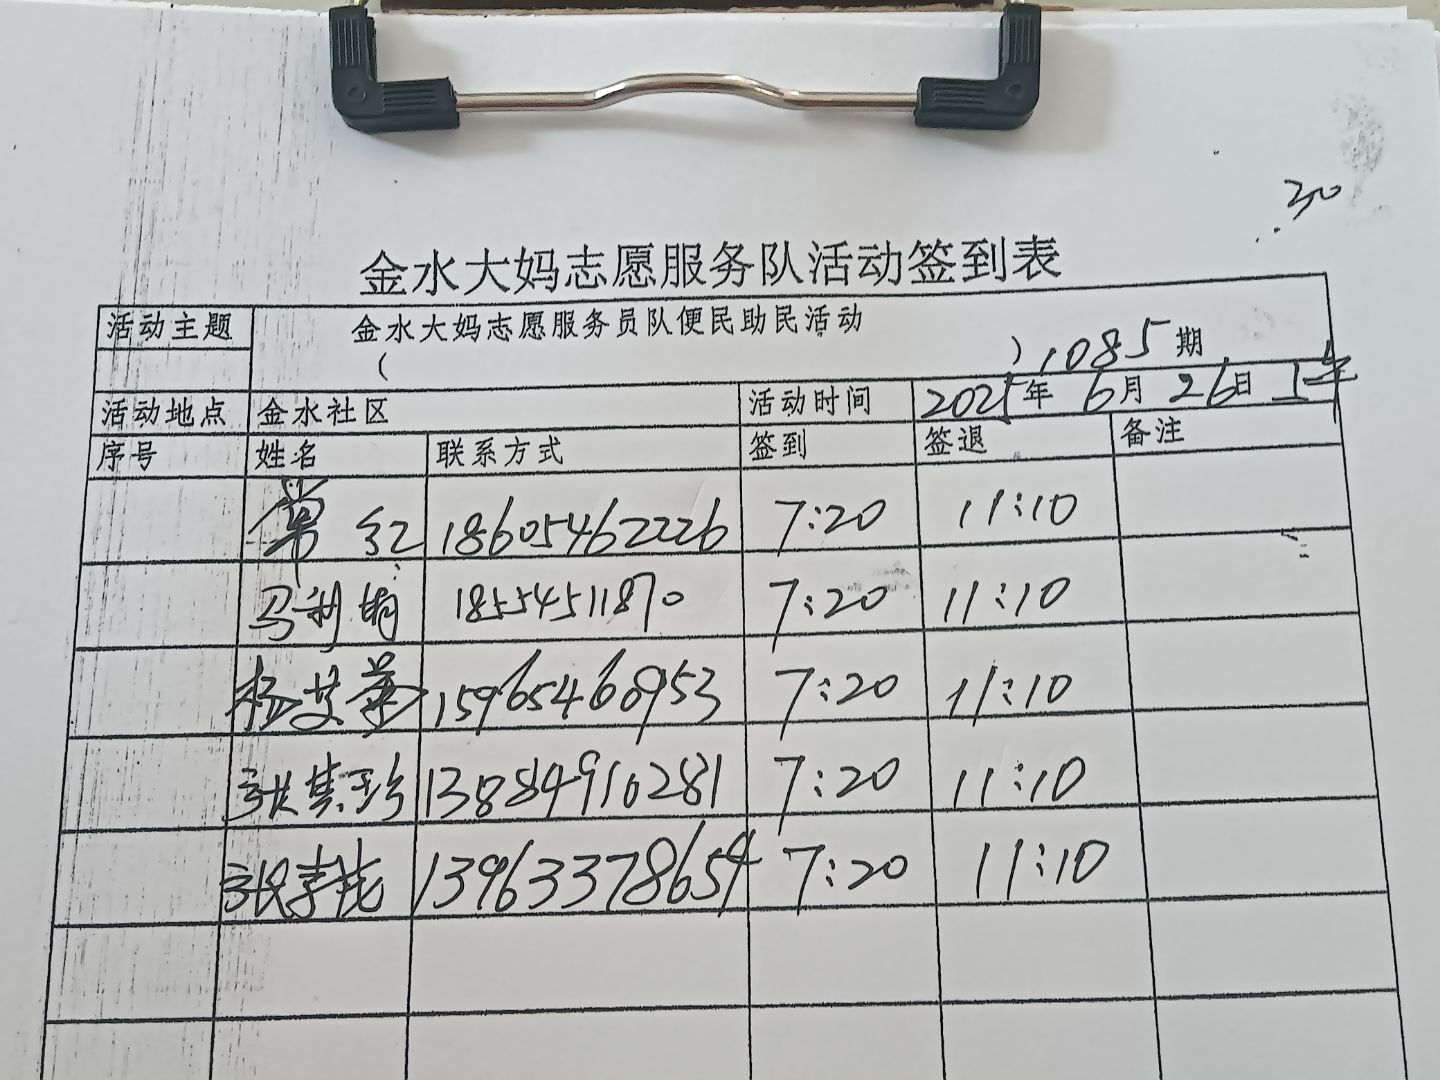 30
金水大妈志愿服务队活动签到表
活动主题 金水大妈志愿服务员队便民助民活动
( ) 1085期
活动地点 金水社区 活动时间 2025年 6月 26日 上午
序号 姓名 联系方式 签到 签退 备注
单红 18605462226 7:20 11:10
马利娟 18554511870 7:20 11:10
杨艾华 15965460953 7:20 11:10
张其珍 13884910281 7:20 11:10
张 13963378654 7:20 11:10